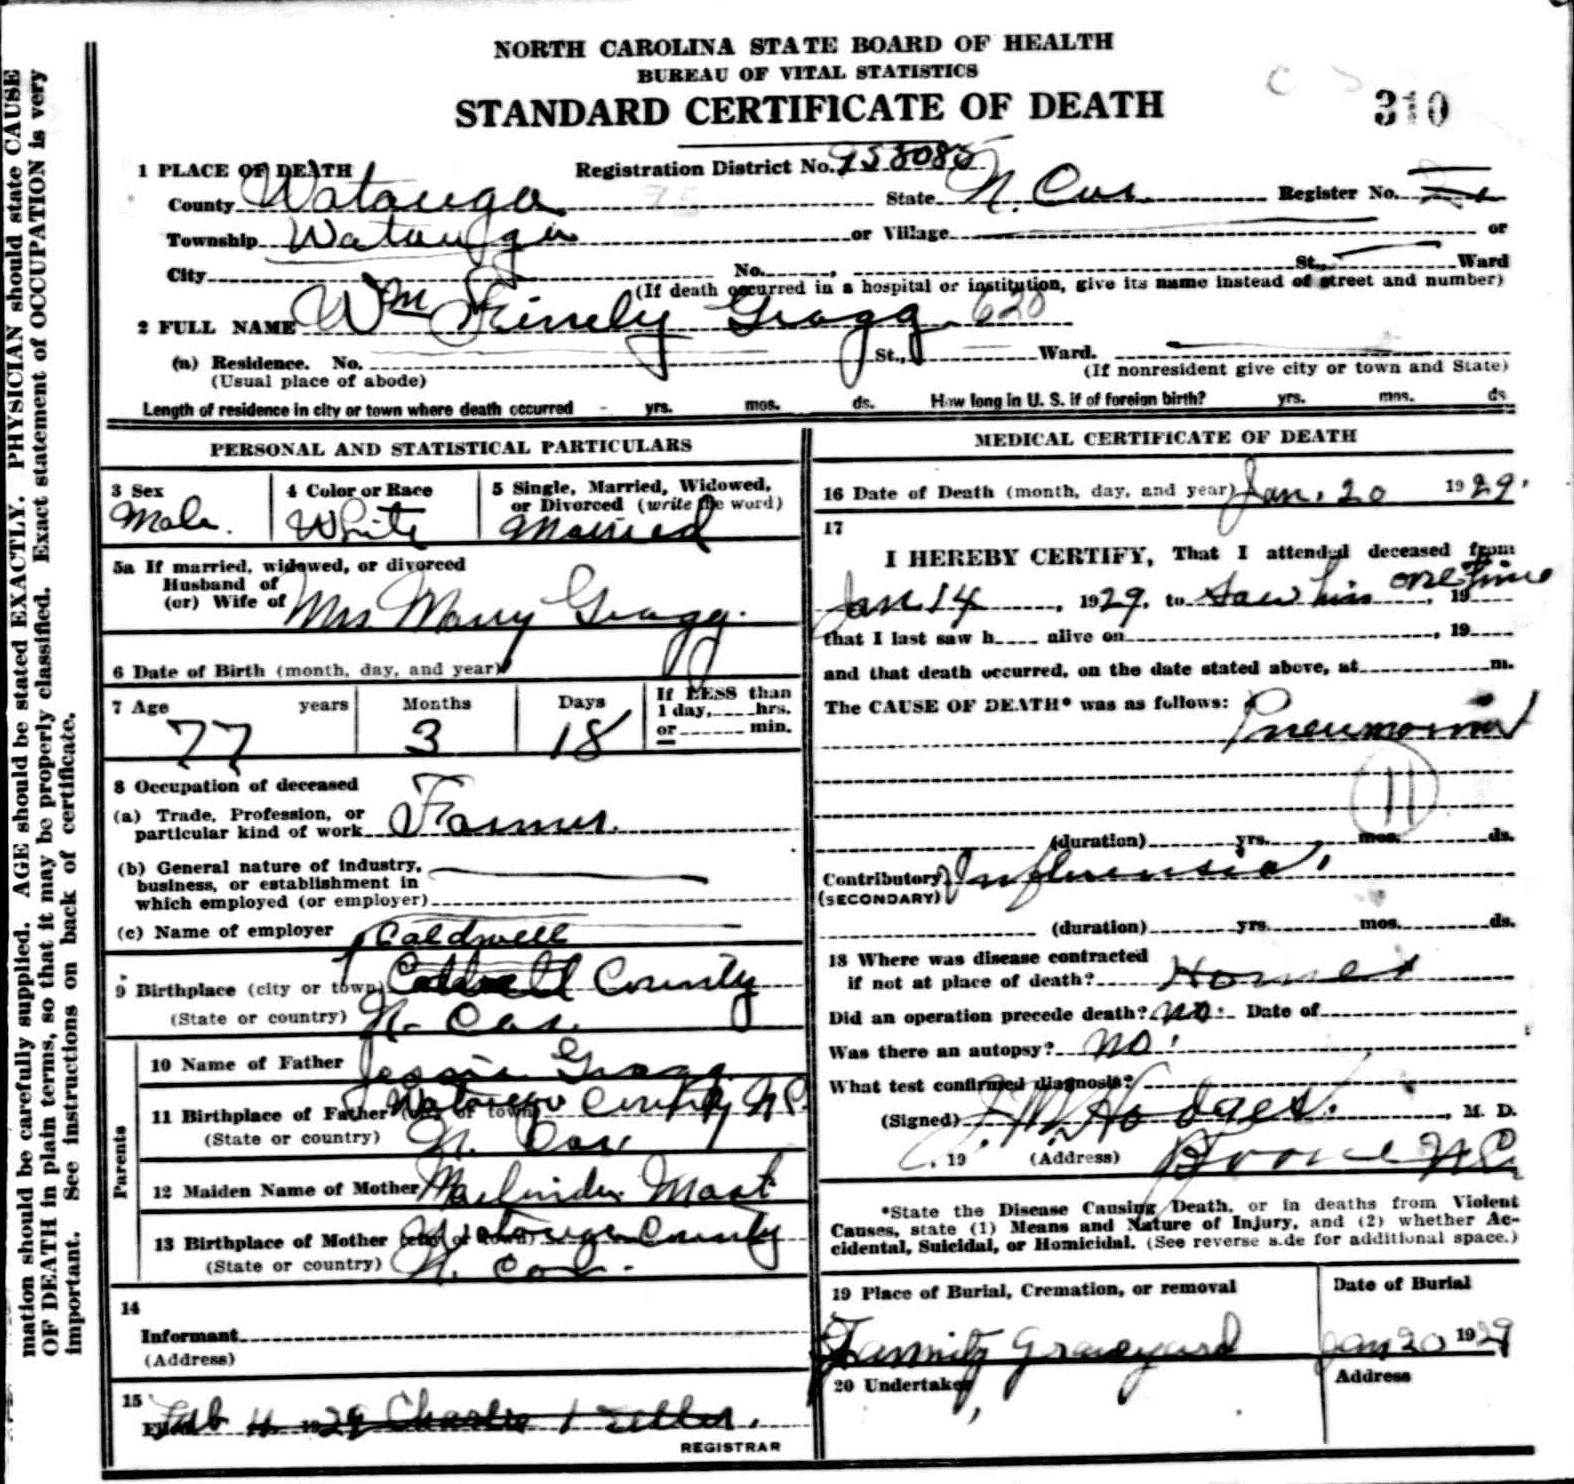 NORTH CAROLINA STATE BOARD OF HEALTH
BUREAU OF VITAL STATISTICS
STANDARD CERTIFICATE OF DEATH
310
1 PLACE OF DEATH
Registration District No. 958085
County Watauga 75 State N. Car. Register No.
Township Watauga or Village or
City No. , St., Ward
(If death occurred in a hospital or institution, give its name instead of street and number)
2 FULL NAME Wm Finely Gragg 620
(a) Residence. No. St., Ward.
(Usual place of abode) (If nonresident give city or town and State)
Length of residence in city or town where death occurred - yrs. mos. ds. How long in U. S. if of foreign birth? yrs. mos. ds
PERSONAL AND STATISTICAL PARTICULARS
3 Sex
Male.
4 Color or Race
White
5 Single, Married, Widowed,
or Divorced (write the word)
Married
5a If married, widowed, or divorced
Husband of
(or) Wife of Mrs Mary Gragg.
6 Date of Birth (month, day, and year)
7 Age years Months Days
77 3 18
If LESS than
1 day, hrs.
or min.
8 Occupation of deceased
(a) Trade, Profession, or
particular kind of work Farmer.
(b) General nature of industry,
business, or establishment in
which employed (or employer)
(c) Name of employer
Caldwell
9 Birthplace (city or town) County
(State or country) N. Car.
Parents
10 Name of Father Jessie Gragg
11 Birthplace of Father (city or town) Watauga County N C.
(State or country) N. Car
12 Maiden Name of Mother Malinda Mast
13 Birthplace of Mother (city or town) Watauga County
(State or country) N. Car.
14
Informant
(Address)
15
Filed Feb 11 1929 Charlie
REGISTRAR
MEDICAL CERTIFICATE OF DEATH
16 Date of Death (month, day, and year) Jan. 20 1929.
17
I HEREBY CERTIFY, That I attended deceased from
Jan 14, 1929, to Saw him one time, 19
that I last saw h alive on , 19
and that death occurred, on the date stated above, at m.
The CAUSE OF DEATH* was as follows:
Pneumonia
11
(duration) yrs. mos. ds.
Contributory Influensia.
(SECONDARY)
(duration) yrs. mos. ds.
18 Where was disease contracted
if not at place of death? Home
Did an operation precede death? no. Date of
Was there an autopsy? no.
What test confirmed diagnosis?
(Signed) J. M. Hodges. , M. D.
, 19 (Address) Boone N C
*State the Disease Causing Death, or in deaths from Violent
Causes, state (1) Means and Nature of Injury, and (2) whether Ac-
cidental, Suicidal, or Homicidal. (See reverse side for additional space.)
19 Place of Burial, Cremation, or removal
Family Graveyard
Date of Burial
Jan 20 1929
20 Undertaker
Address
mation should be carefully supplied. AGE should be stated EXACTLY. PHYSICIAN should state CAUSE
OF DEATH in plain terms, so that it may be properly classified. Exact statement of OCCUPATION is very
important. See instructions on back of certificate.